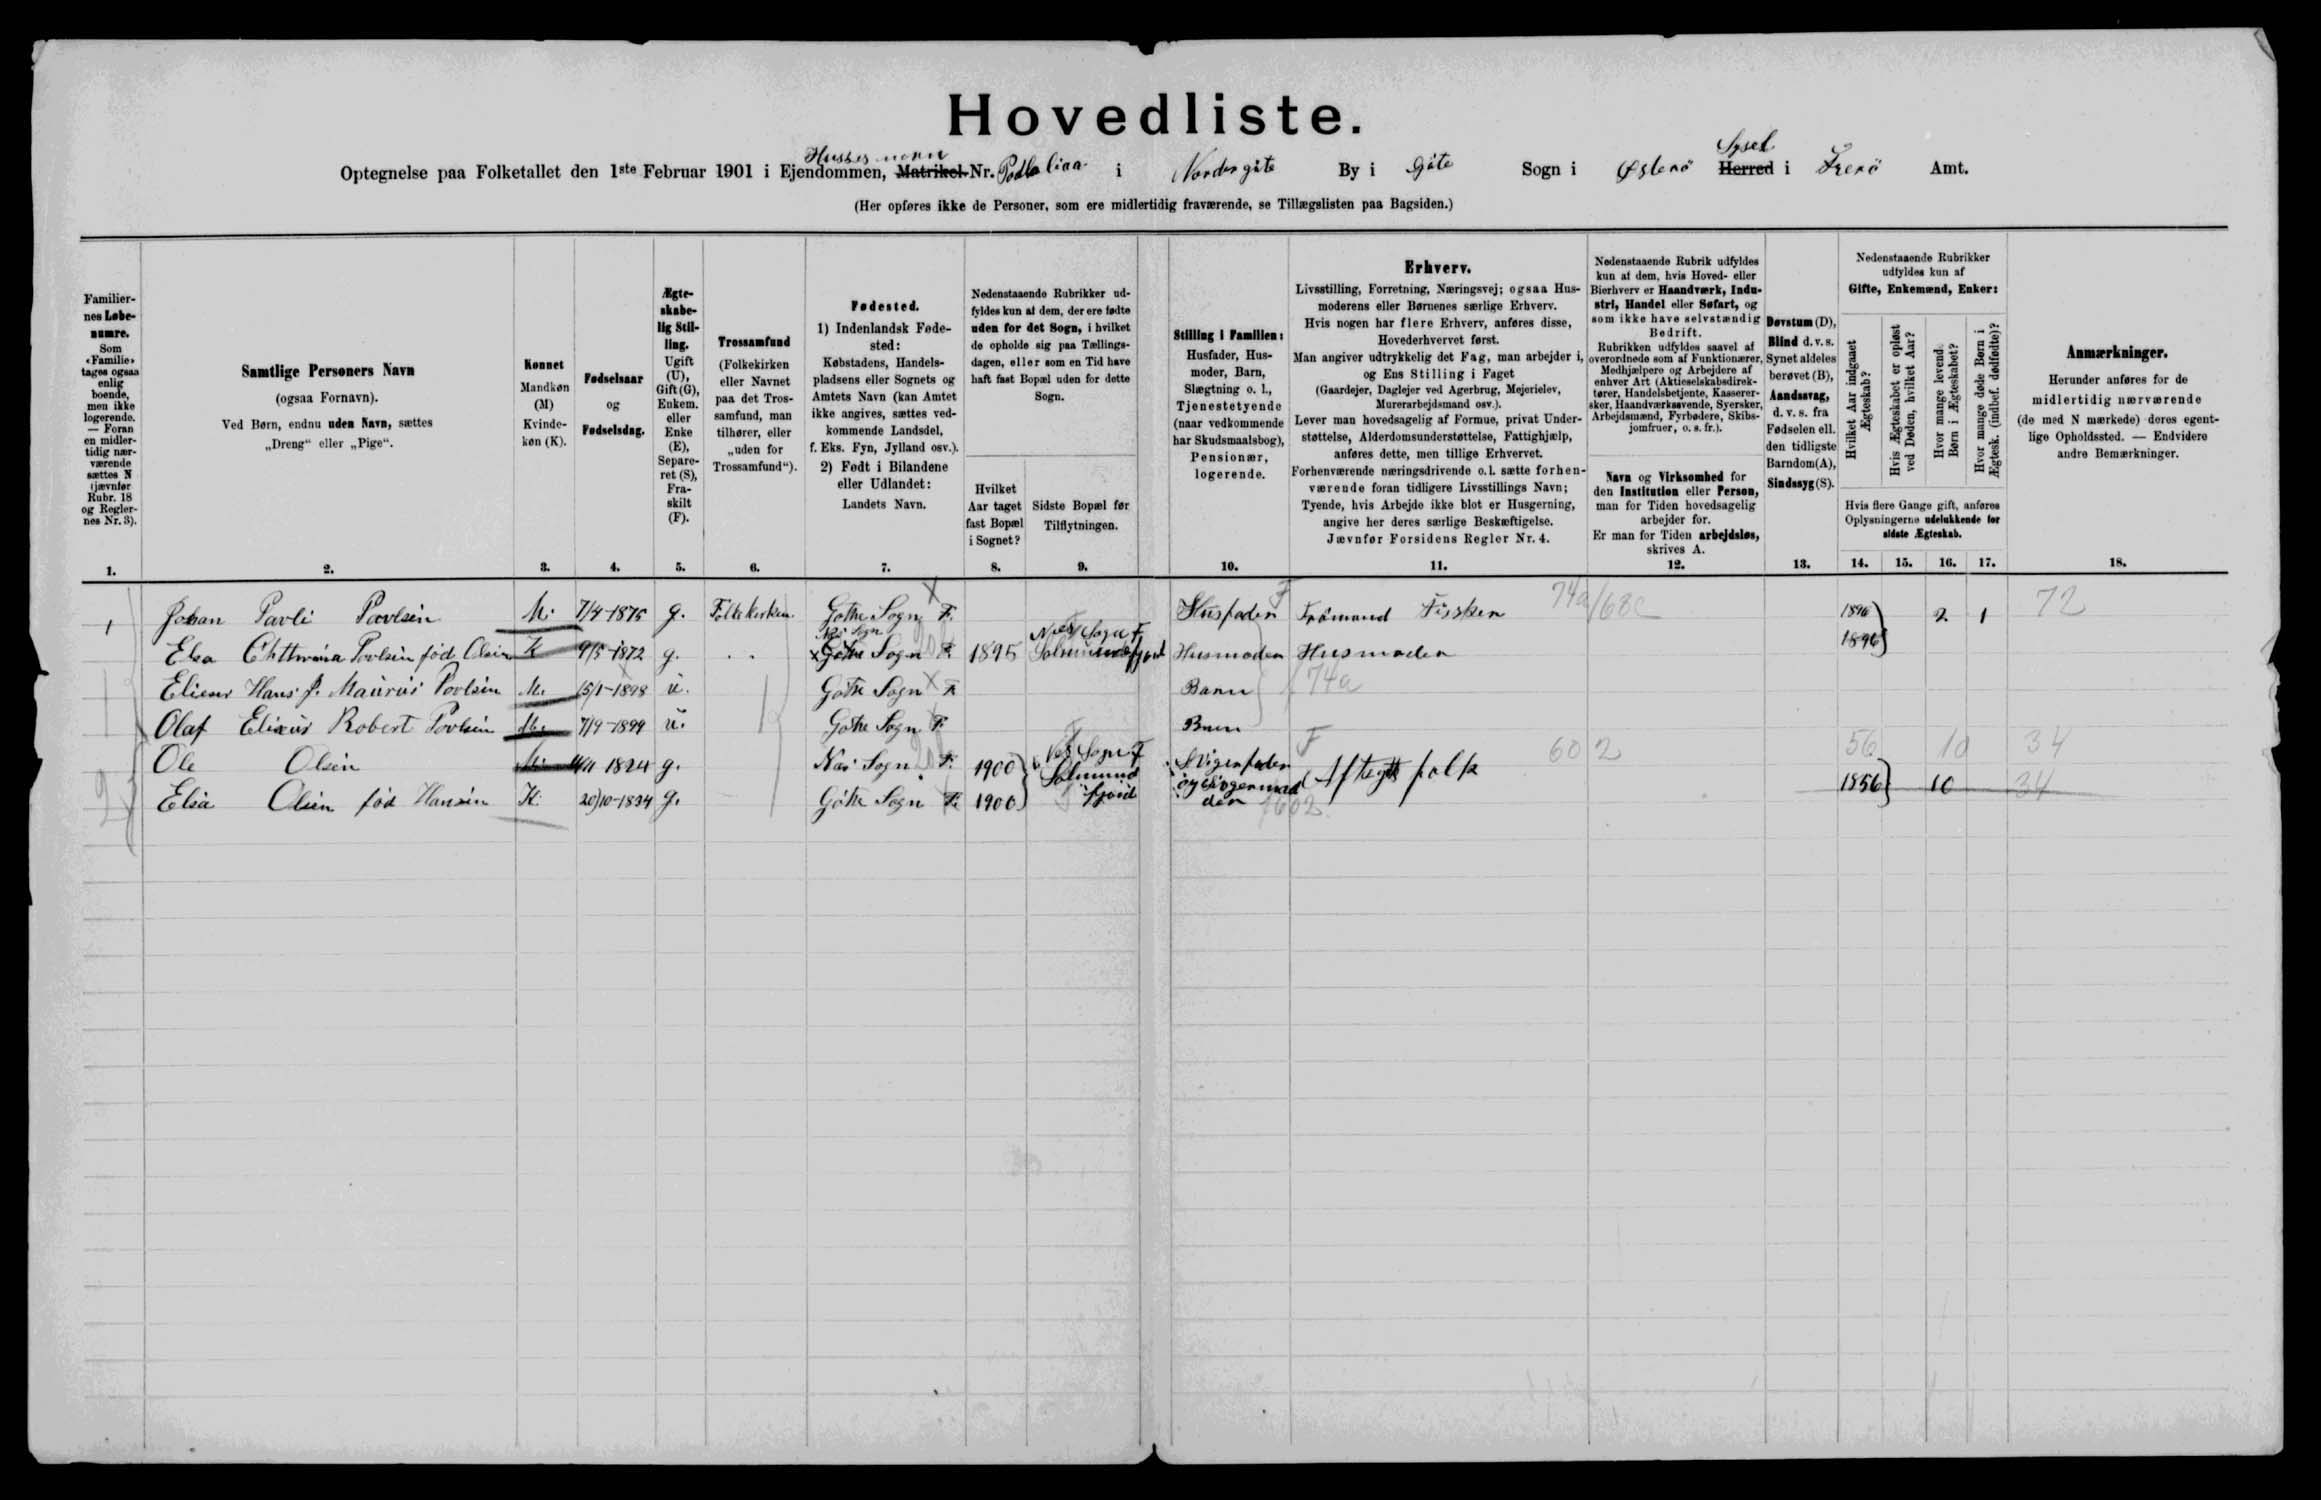 Hovedliste.
Optegnelse paa Folketallet den 1ste Februar 1901 i Ejendommen, Matrikel-Nr. i Nordregöte By i Göte Sogn i Østerö Herred Sysel i Færö Amt.
(Her opføres ikke de Personer, som ere midlertidig fraværende, se Tillægslisten paa Bagsiden.)
Familiernes Løbenumre.
Som «Familie» tages ogsaa enlig boende, men ikke logerende. — Foran en midlertidig nærværende sættes N (jævnfør Rubr. 18 og Reglernes Nr. 3).
Samtlige Personers Navn
(ogsaa Fornavn).
Ved Børn, endnu uden Navn, sættes
„Dreng“ eller „Pige“.
Kønnet
Mandkøn (M)
Kvindekøn (K).
Fødselsaar
og
Fødselsdag.
Ægteskabelig Stilling.
Ugift (U), Gift (G), Enkem. eller Enke (E), Separeret (S), Fraskilt (F).
Trossamfund
(Folkekirken eller Navnet paa det Trossamfund, man tilhører, eller „uden for Trossamfund“).
Fødested.
1) Indenlandsk Fødested:
Købstadens, Handelspladsens eller Sognets og Amtets Navn (kan Amtet ikke angives, sættes vedkommende Landsdel, f. Eks. Fyn, Jylland osv.).
2) Født i Bilandene eller Udlandet:
Landets Navn.
Nedenstaaende Rubrikker udfyldes kun af dem, der ere fødte uden for det Sogn, i hvilket de opholde sig paa Tællingsdagen, eller som en Tid have haft fast Bopæl uden for dette Sogn.
Hvilket Aar taget fast Bopæl i Sognet?
Sidste Bopæl før Tilflytningen.
Stilling i Familien:
Husfader, Husmoder, Barn, Slægtning o. l., Tjenestetyende (naar vedkommende har Skudsmaalsbog), Pensionær, logerende.
Erhverv.
Livsstilling, Forretning, Næringsvej; ogsaa Husmoderens eller Børnenes særlige Erhverv.
Hvis nogen har flere Erhverv, anføres disse, Hovederhvervet først.
Man angiver udtrykkelig det Fag, man arbejder i, og Ens Stilling i Faget
(Gaardejer, Daglejer ved Agerbrug, Mejerielev, Murerarbejdsmand osv.).
Lever man hovedsagelig af Formue, privat Understøttelse, Alderdomsunderstøttelse, Fattighjælp, anføres dette, men tillige Erhvervet.
Forhenværende næringsdrivende o. l. sætte forhenværende foran tidligere Livsstillings Navn;
Tyende, hvis Arbejde ikke blot er Husgerning, angive her deres særlige Beskæftigelse.
Jævnfør Forsidens Regler Nr. 4.
Nedenstaaende Rubrik udfyldes kun af dem, hvis Hoved- eller Bierhverv er Haandværk, Industri, Handel eller Søfart, og som ikke have selvstændig Bedrift.
Rubrikken udfyldes saavel af overordnede som af Funktionærer, Medhjælpere og Arbejdere af enhver Art (Aktieselskabsdirektører, Handelsbetjente, Kasserersker, Haandværkssvende, Syersker, Arbejdsmænd, Fyrbødere, Skibsjomfruer, o. s. fr.).
Navn og Virksomhed for den Institution eller Person, man for Tiden hovedsagelig arbejder for.
Er man for Tiden arbejdsløs, skrives A.
Døvstum (D), Blind d. v. s. Synet aldeles berøvet (B), Aandssvag, d. v. s. fra Fødselen ell. den tidligste Barndom (A), Sindssyg (S).
Nedenstaaende Rubrikker udfyldes kun af
Gifte, Enkemænd, Enker:
Hvilket Aar indgaaet Ægteskab?
Hvis Ægteskabet er opløst ved Døden, hvilket Aar?
Hvor mange levend. Børn i Ægteskabet?
Hvor mange døde Børn i Ægtesk. (indbef. dødfødte)?
Hvis flere Gange gift, anføres Oplysningerne udelukkende for sidste Ægteskab.
Anmærkninger.
Herunder anføres for de midlertidig nærværende (de med N mærkede) deres egentlige Opholdssted. — Endvidere andre Bemærkninger.
1. 2. 3. 4. 5. 6. 7. 8. 9. 10. 11. 12. 13. 14. 15. 16. 17. 18.
1 Johan Pavli Povlsen M. 7/4-1875 g. Folkekirken. Göthe Sogn F. Husfader Fisker 74a/68c 1896 2 1 72
Elsa Povlsen fød Olsen K 9/5-1872 g. . . Nes Sogn Göthe Sogn F. 1895 Nes Sogn F. Husmoder Husmoder 1896
Hans J. Povlsen M. 15/1-1898 u. Göthe Sogn F. Barn 74a
Olaf Robert Povlsen M. 7/9-1899 u. Göthe Sogn F. Barn
2 Ole Olsen M. 1824 g. Nes Sogn F. 1900 Nes Sogn F. Svigerfader Aftægtsfolk 602 56 10 34
Elsa Olsen fød Hansen K. 20/10-1834 g. Göthe Sogn F. 1900 og Svigermoder 602 1856 10 34